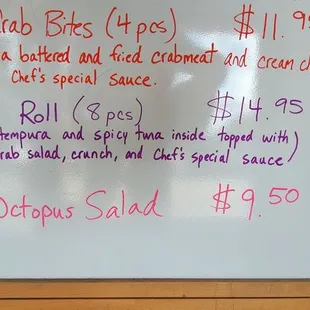 rab Bites (4 pcs) $11.95
a battered and fried crabmeat and cream ch
Chef's special sauce.
Roll (8 pcs) $14.95
tempura and spicy tuna inside topped with
rab salad, crunch, and Chef's special sauce)
Octopus Salad $9.50